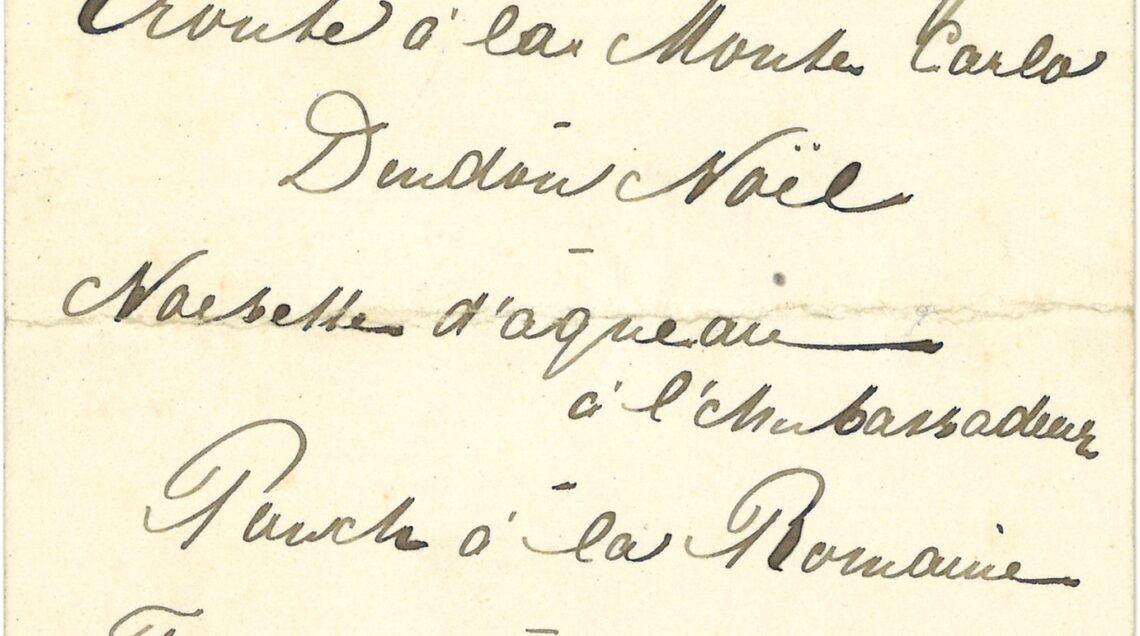 Croute à la Monte Carlo
Dindon Noël
Noisette d'agneau
à l'Ambassadeur
Punch à la Romaine